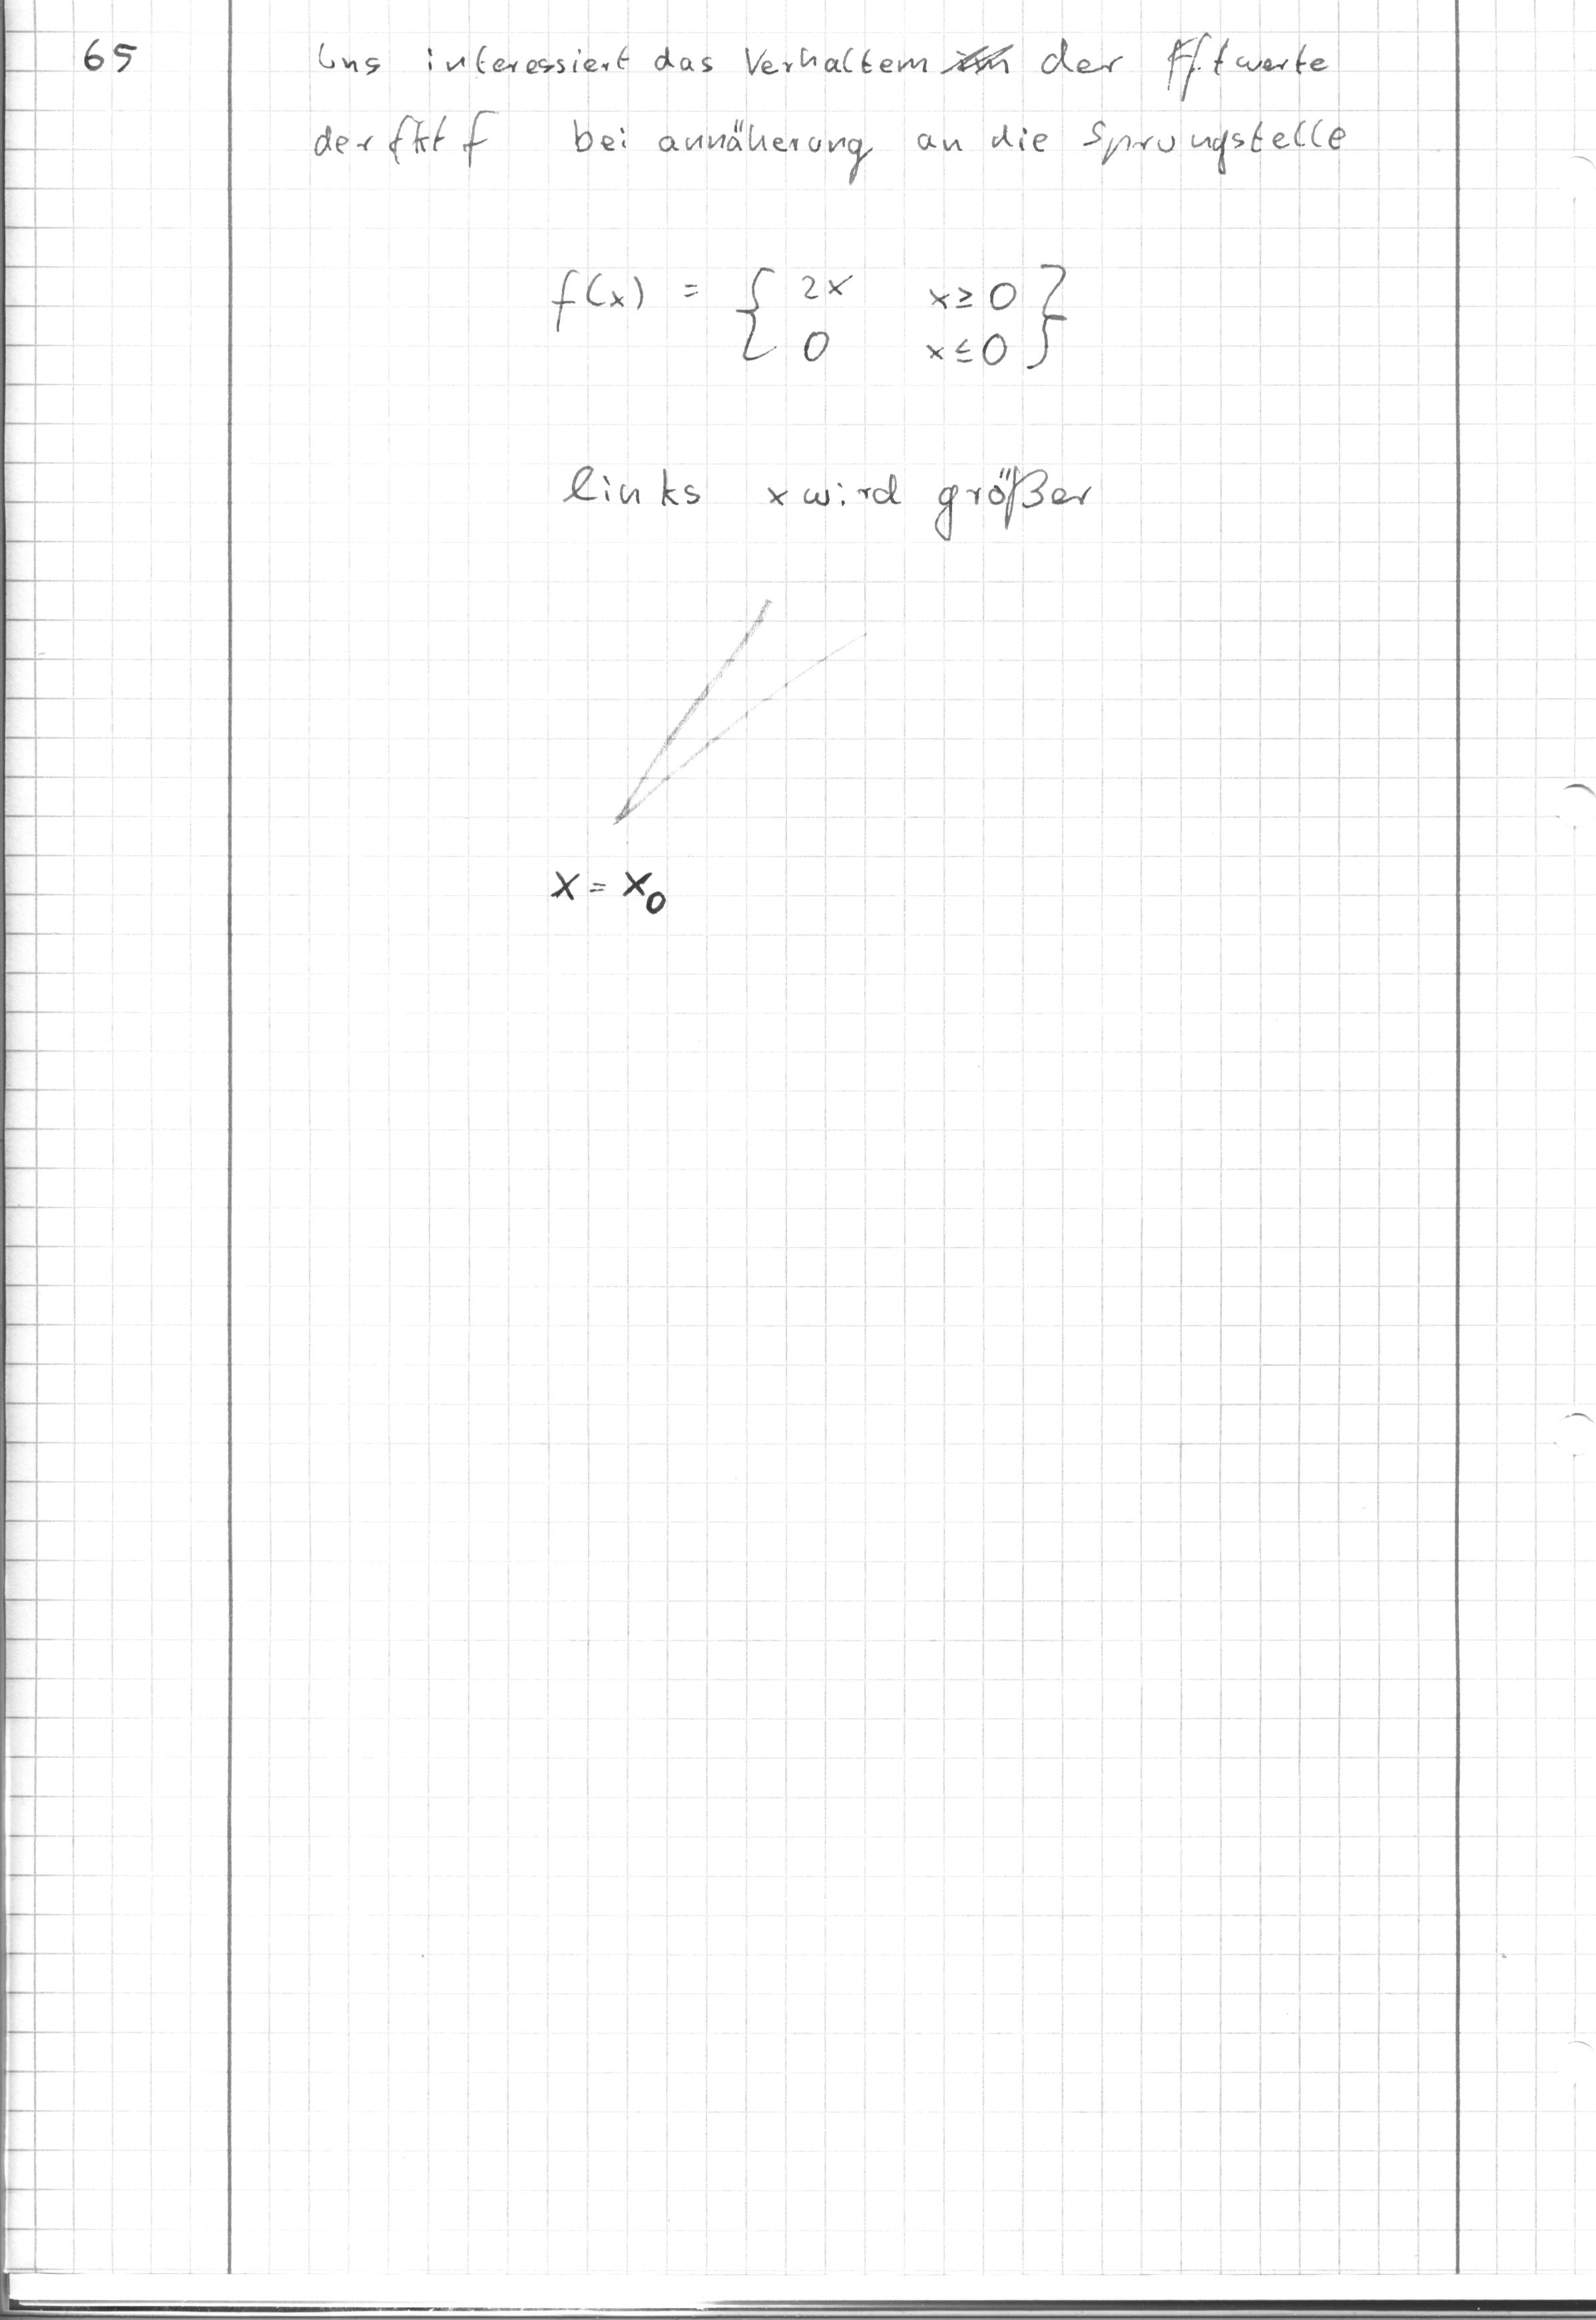 65 Uns interessiert das Verhaltem der Fktwerte
der fkt f bei annäherung an die Sprungstelle
f(x) = { 2x x ≥ 0 }
0 x ≤ 0
links x wird größer
x = x₀